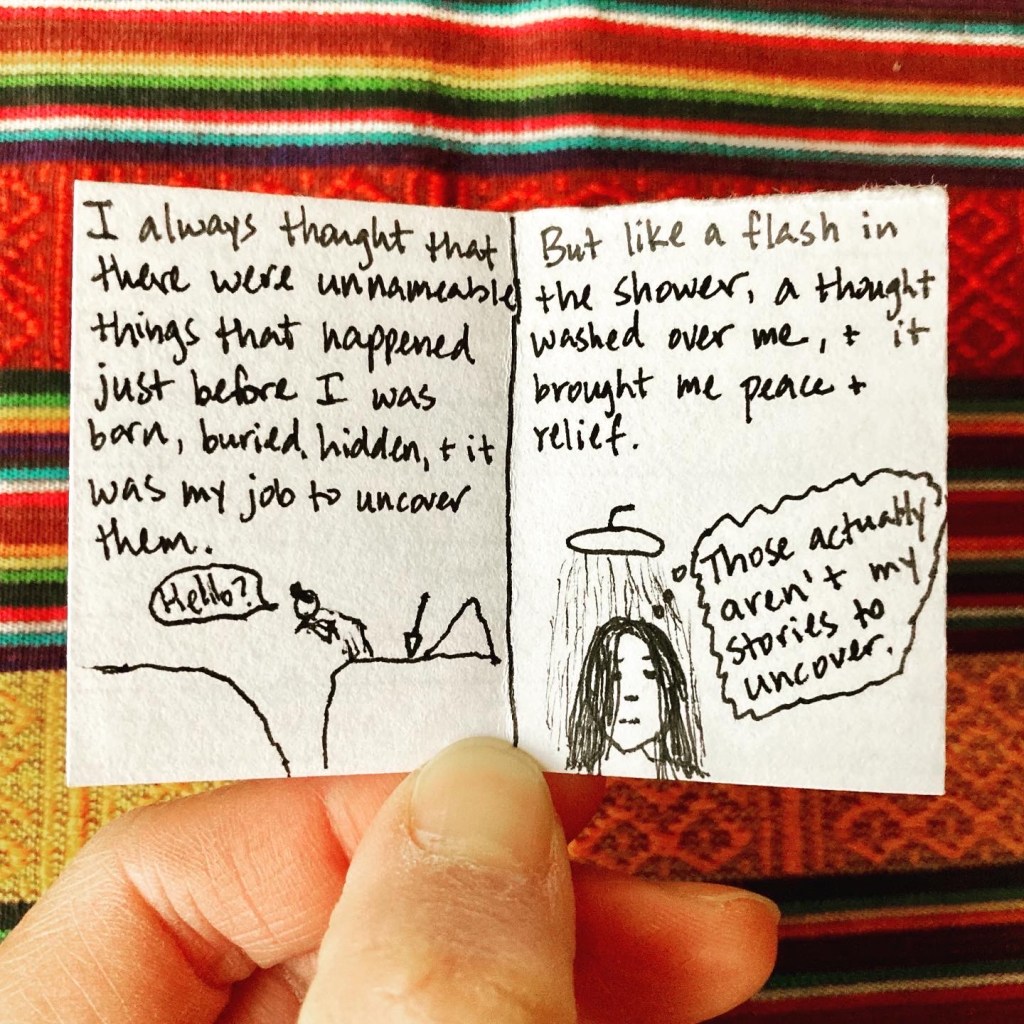 I always thought that
there were unnameable
things that happened
just before I was
born, buried, hidden, + it
was my job to uncover
them.
Hello?
But like a flash in
the shower, a thought
washed over me, + it
brought me peace +
relief.
Those actually
aren't my
stories to
uncover.